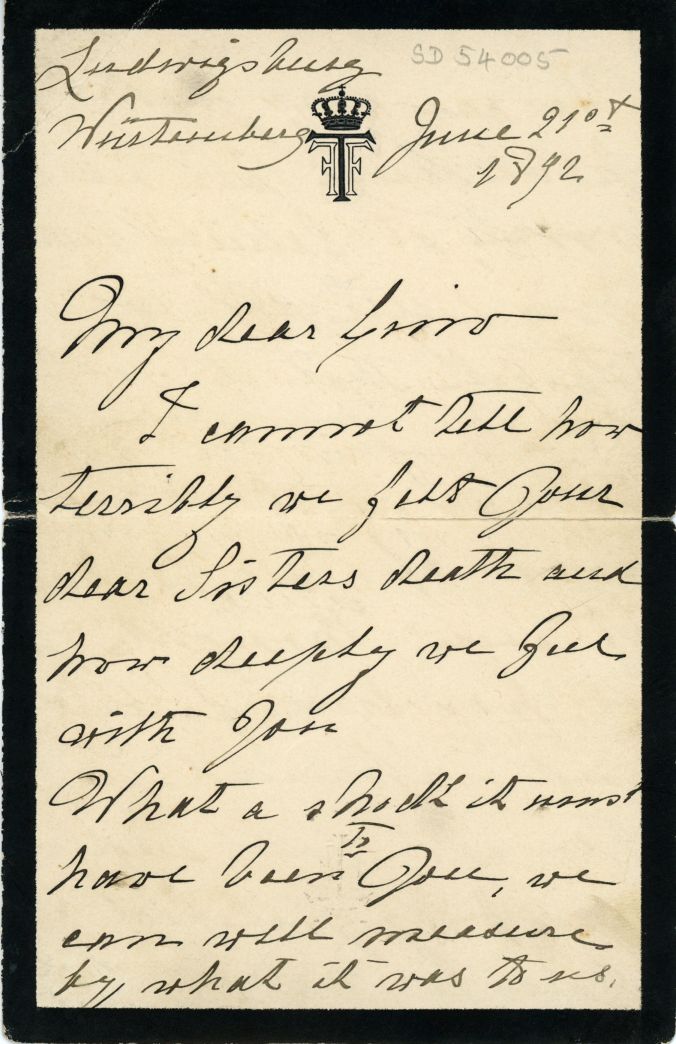 Ludwigsburg
SD 54005
Würtemberg
June 21st
1892
My dear
I cannot tell how
terribly we felt Your
dear Sisters death and
how deeply we feel
with You
What a shock it must
to
have been You, we
can well measure
by what it was to us.